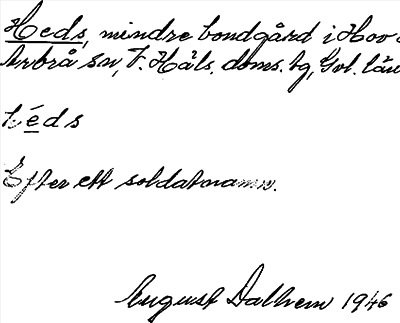 Heds, mindre bondgård i Hov
Arbrå sn, V. Häls. doms. bg, Gvl. län
héds
Efter ett soldatnamn.
August Dalhem 1946